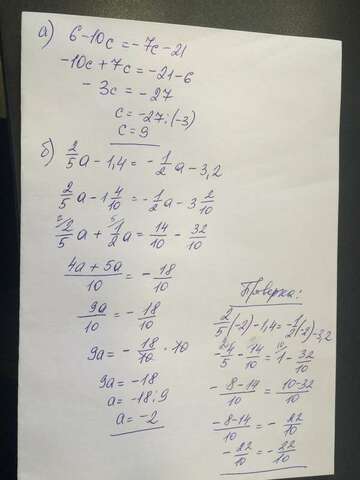 а) 6-10c = -7c-21
-10c+7c = -21-6
-3c = -27
c = -27:(-3)
c = 9
б) 2/5a - 1,4 = -1/2a - 3,2
2/5a - 1 4/10 = -1/2a - 3 2/10
2/5a + 1/2a = 14/10 - 32/10
4a+5a/10 = -18/10
9a/10 = -18/10
9a = -18/10 · 10
9a = -18
a = -18:9
a = -2
Проверка:
2/5(-2)-1,4 = -1/2(-2)-3,2
-4/5 - 14/10 = 1 - 32/10
-8-14/10 = 10-32/10
-8-14/10 = -22/10
-22/10 = -22/10